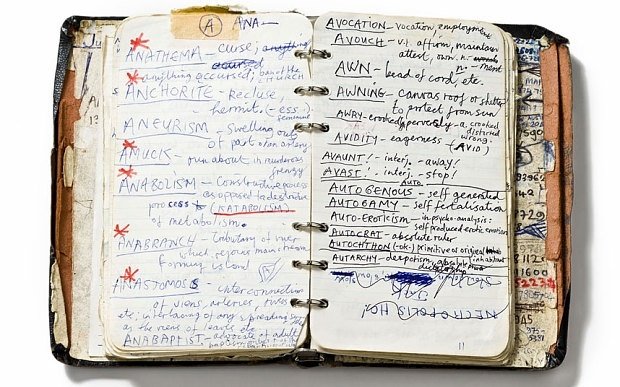 A ANA—
ANATHEMA - curse; anything
accursed
anything accursed; ban of the CHURCH
ANCHORITE - Recluse,
hermit. (-ess:-) feminine
ANEURISM - swelling out
of part of an artery
AMUCK - run about in murderous
frenzy
ANABOLISM - Constructive process
as opposed to destructive
process (KATABOLISM)
of metabolism.
ANABRANCH - tributary of river
which rejoins main from
forming island
ANASTOMOSIS - interconnection
of veins, arteries
etc; interlacing of any spreading
as the veins of leaves etc.
ANABAPTIST - advocate of adult
AVOCATION - vocation, employment
AVOUCH - v.t. affirm, maintain
attest, own. n. -ment
AWN - n. beard of corn, etc.
AWNING - canvas roof or shelter
to protect from sun
AWRY - crookedly, perversely - a. crooked
distorted
wrong
AVIDITY - eagerness (AVID)
AVAUNT! - interj. - away!
AVAST! - interj. - stop!
AUTOGENOUS - self generated
AUTOGAMY - self fertilisation
AUTO-EROTICISM - in psycho-analysis:
self produced erotic emotion
AUTOCRAT - absolute ruler
AUTOCHTHON (-ok-) primitive or original inhabitant
AUTARCHY - despotism, absolute
dictatorship
NECROPOLIS
11